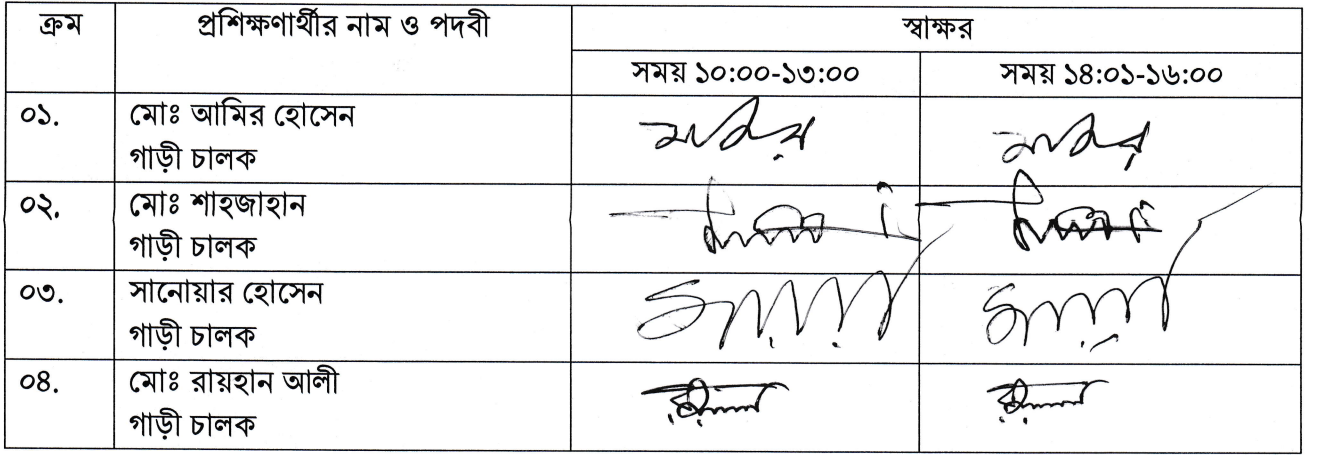 ক্রম প্রশিক্ষণার্থীর নাম ও পদবী স্বাক্ষর
সময় ১০:০০-১৩:০০ সময় ১৪:০১-১৬:০০
০১. মোঃ আমির হোসেন
গাড়ী চালক
০২. মোঃ শাহজাহান
গাড়ী চালক
০৩. সানোয়ার হোসেন
গাড়ী চালক
০৪. মোঃ রায়হান আলী
গাড়ী চালক